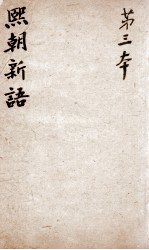 熙朝新語
第三本